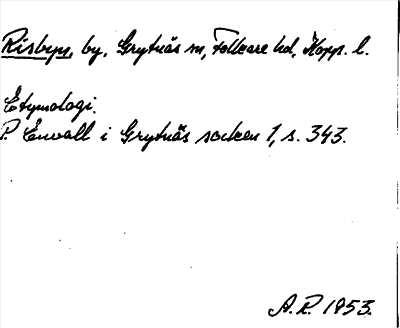 Risbyn, by, Grytnäs sn, Folkare hd, Kopp. l.
Etymologi.
P. Envall i Grytnäs socken 1, s. 343.
A. R. 1953.